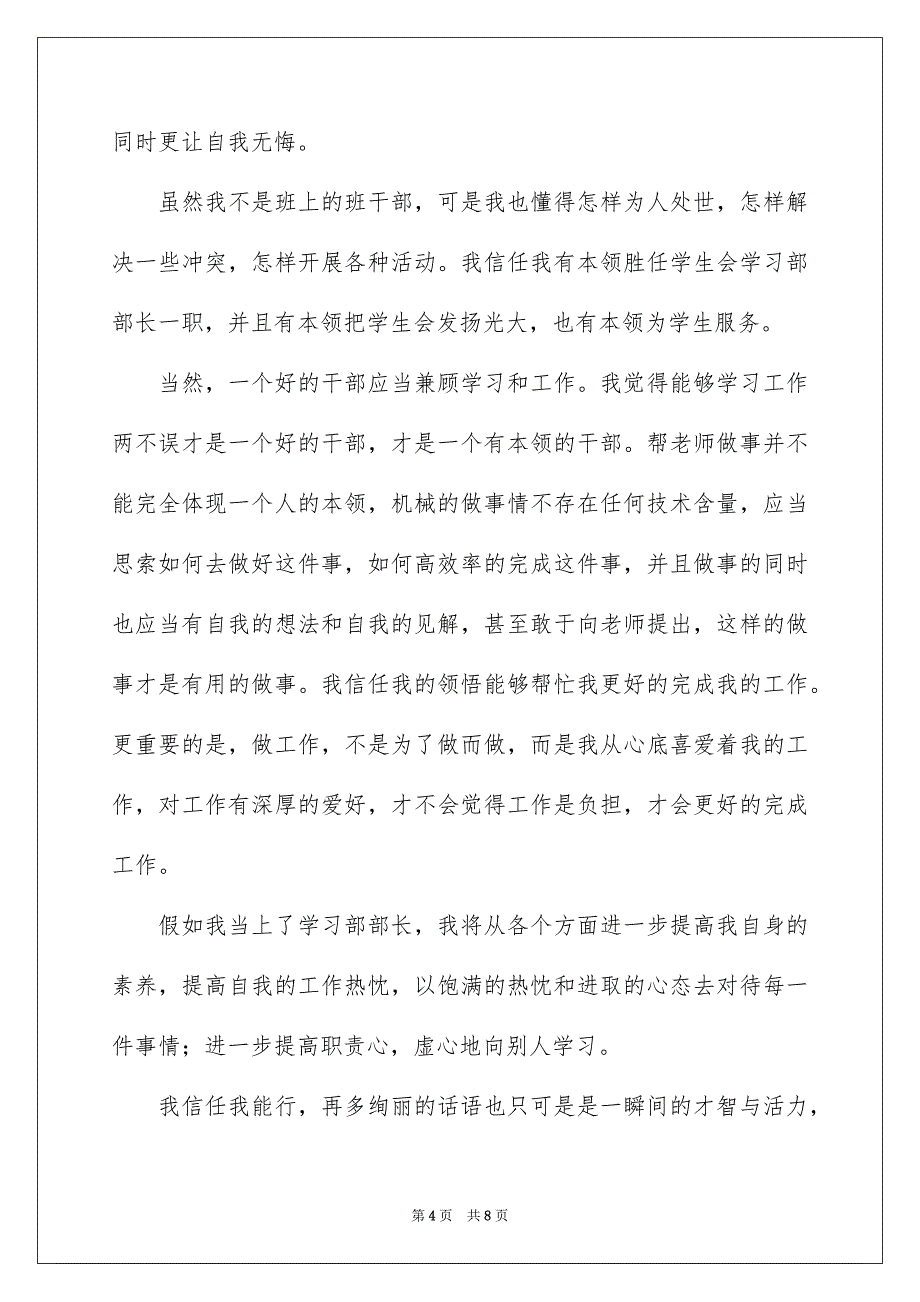 同时更让自我无悔。
虽然我不是班上的班干部，可是我也懂得怎样为人处世，怎样解
决一些冲突，怎样开展各种活动。我信任我有本领胜任学生会学习部
部长一职，并且有本领把学生会发扬光大，也有本领为学生服务。
当然，一个好的干部应当兼顾学习和工作。我觉得能够学习工作
两不误才是一个好的干部，才是一个有本领的干部。帮老师做事并不
能完全体现一个人的本领，机械的做事情不存在任何技术含量，应当
思索如何去做好这件事，如何高效率的完成这件事，并且做事的同时
也应当有自我的想法和自我的见解，甚至敢于向老师提出，这样的做
事才是有用的做事。我信任我的领悟能够帮忙我更好的完成我的工作。
更重要的是，做工作，不是为了做而做，而是我从心底喜爱着我的工
作，对工作有深厚的爱好，才不会觉得工作是负担，才会更好的完成
工作。
假如我当上了学习部部长，我将从各个方面进一步提高我自身的
素养，提高自我的工作热忱，以饱满的热忱和进取的心态去对待每一
件事情；进一步提高职责心，虚心地向别人学习。
我信任我能行，再多绚丽的话语也只可是是一瞬间的才智与活力，
第 4 页 共 8 页